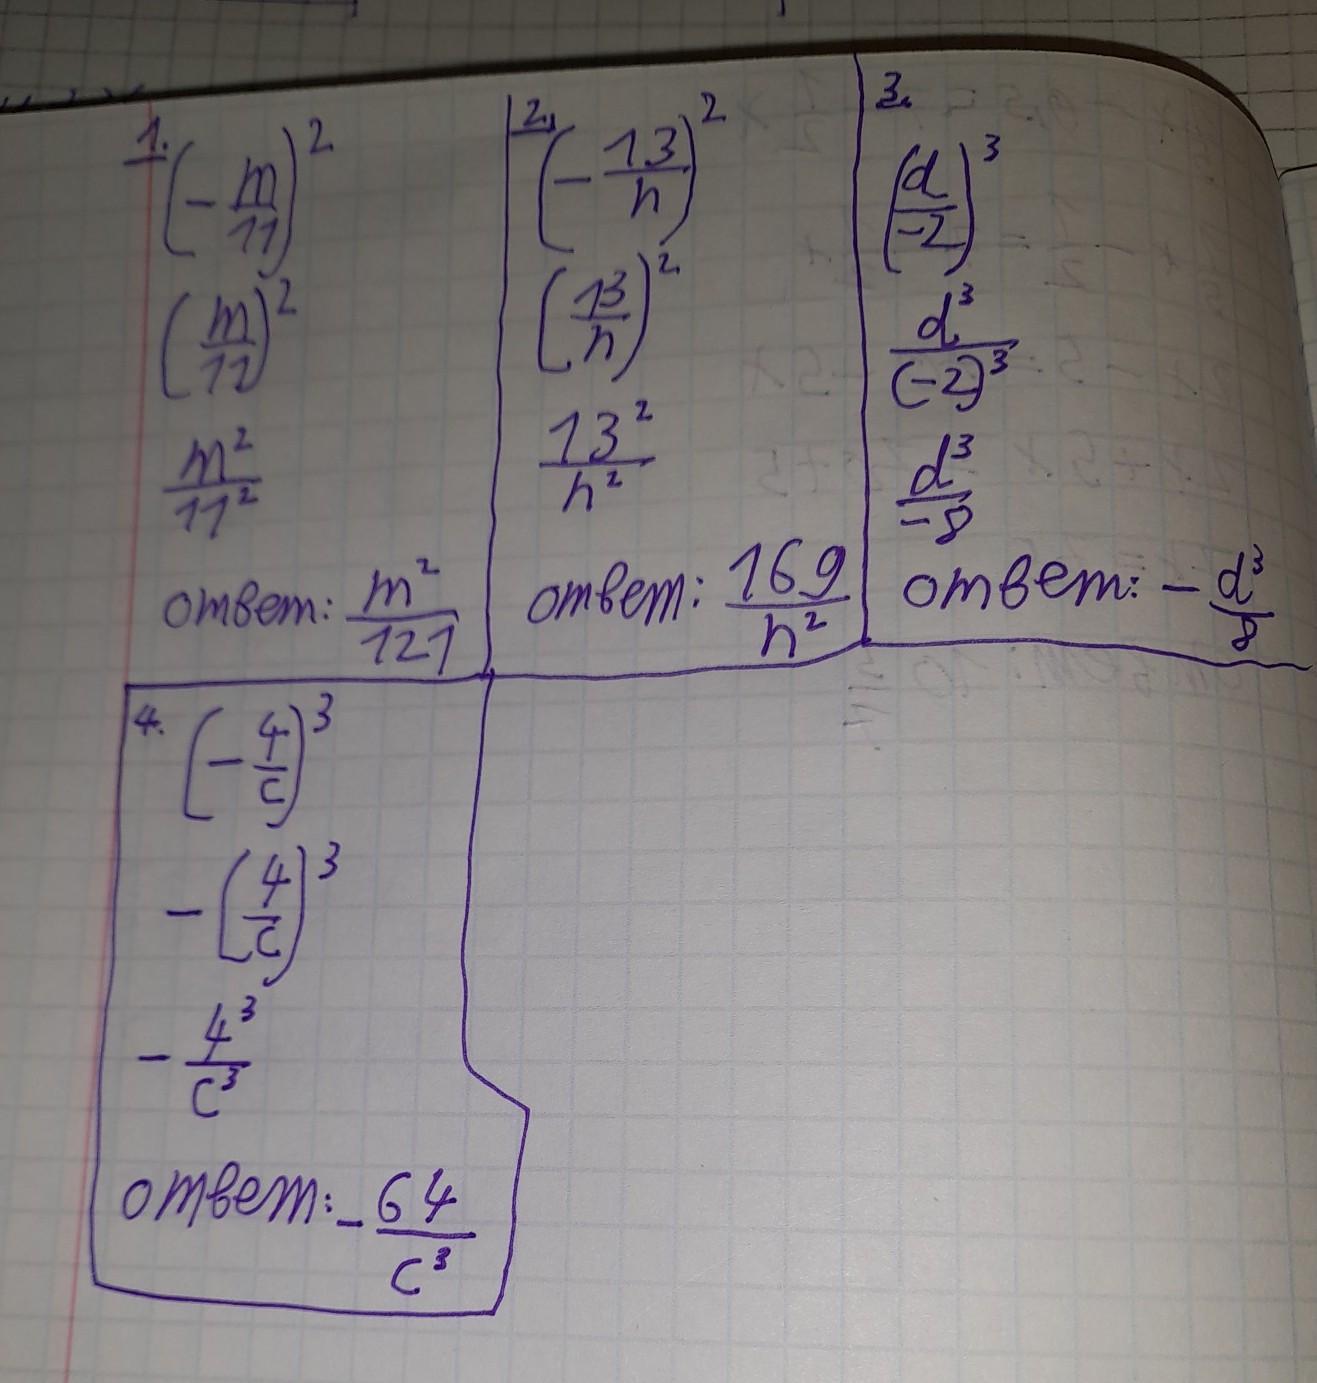 1.
(-m/11)²
(m/11)²
m²/11²
ответ: m²/121
2.
(-13/n)²
(13/n)²
13²/n²
ответ: 169/n²
3.
(d/-2)³
d³/(-2)³
d³/-8
ответ: -d³/8
4.
(-4/c)³
-(4/c)³
-4³/c³
ответ: -64/c³